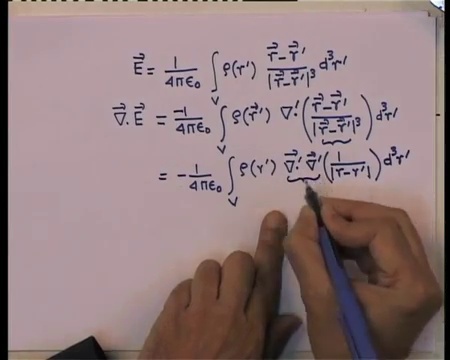 E⃗ = 1/4πε₀ ∫_V ρ(r') (r⃗ - r⃗')/|r⃗ - r⃗'|³ d³r'
∇⃗. E⃗ = -1/4πε₀ ∫_V ρ(r⃗') ∇'. ( (r⃗ - r⃗')/|r⃗ - r⃗'|³ ) d³r'
= - 1/4πε₀ ∫_V ρ(r') ∇⃗'. ∇⃗' ( 1/|r - r'| ) d³r'